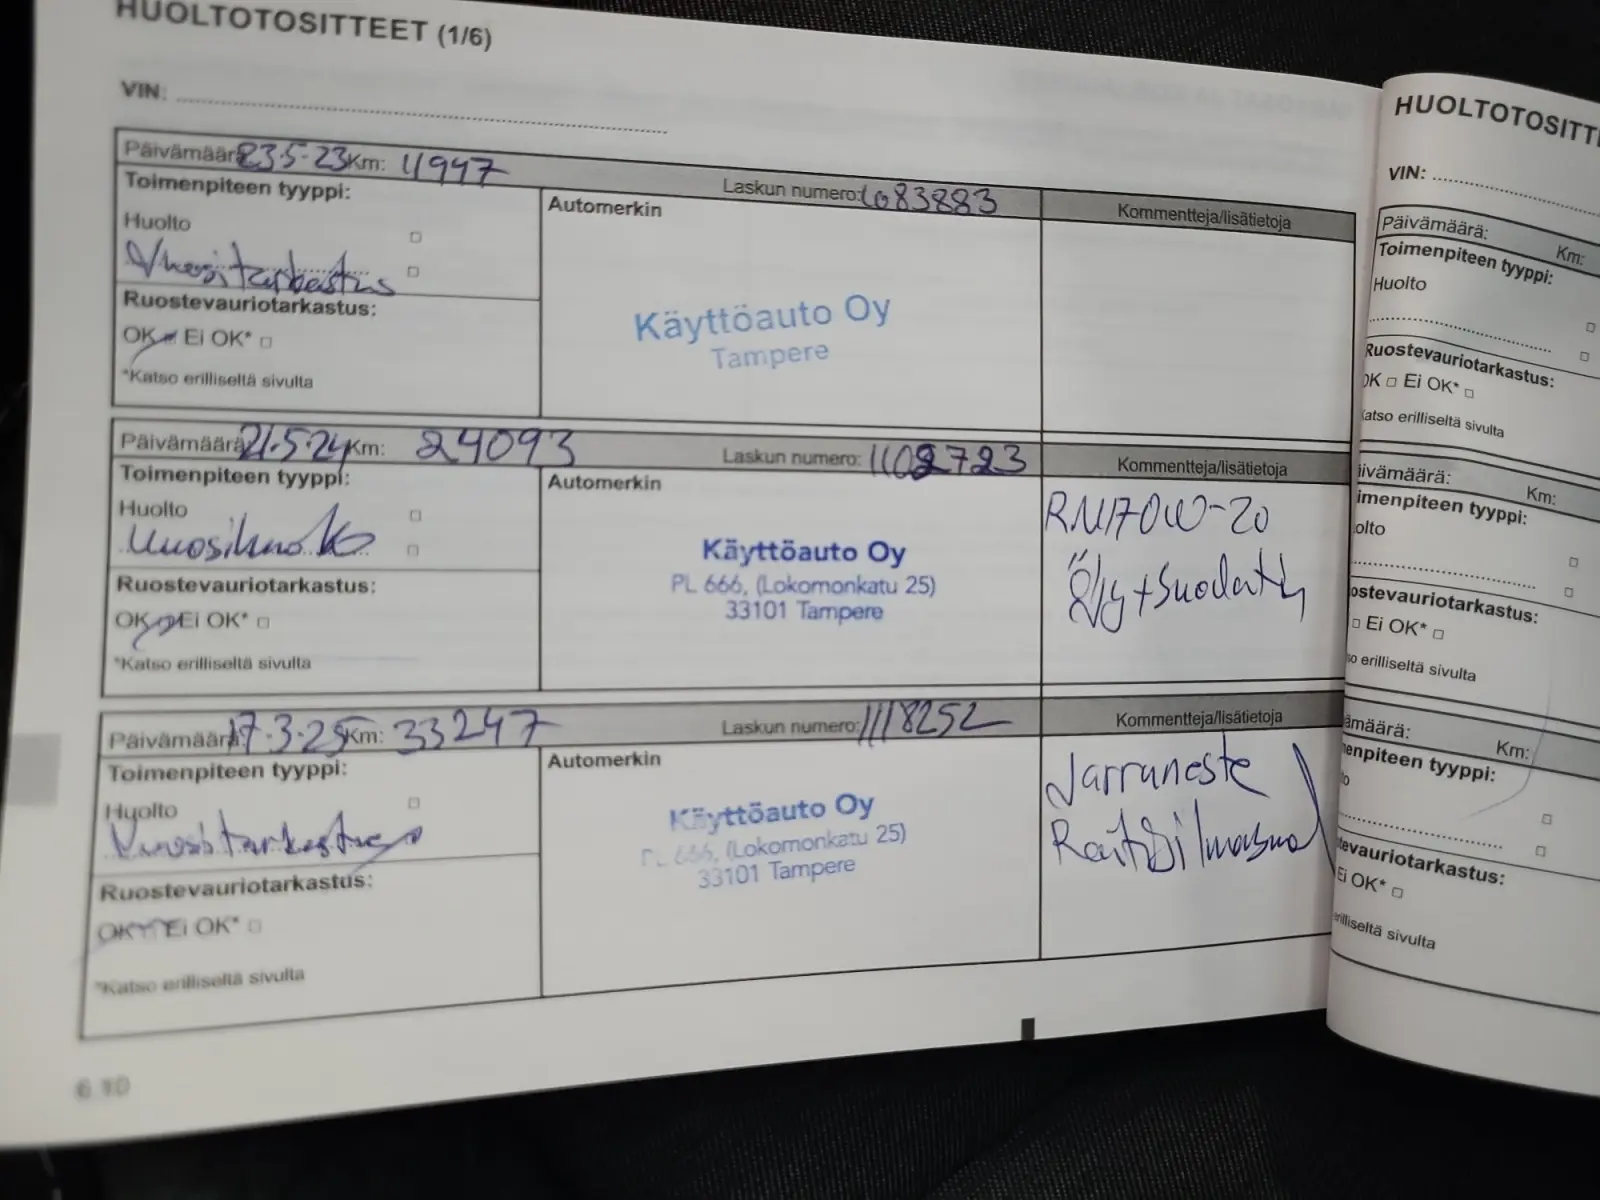 HUOLTOTOSITTEET (1/6)
VIN:
Päivämäärä: 23.5.23 Km: 11997 Laskun numero: 1083883
Toimenpiteen tyyppi:
Automerkin
Kommentteja/lisätietoja
Huolto
Vuositarkastus
Ruostevauriotarkastus:
OK Ei OK*
*Katso erilliseltä sivulta
Käyttöauto Oy
Tampere
Päivämäärä: 21.5.24 Km: 24093 Laskun numero: 1102723
Toimenpiteen tyyppi:
Automerkin
Kommentteja/lisätietoja
Huolto
Vuosihuolto
Ruostevauriotarkastus:
OK Ei OK*
*Katso erilliseltä sivulta
Käyttöauto Oy
PL 666, (Lokomonkatu 25)
33101 Tampere
RN17 0W-20
Öljy + Suodatin
Päivämäärä: 17.3.25 Km: 33247 Laskun numero: 1118252
Toimenpiteen tyyppi:
Automerkin
Kommentteja/lisätietoja
Huolto
Vuositarkastus
Ruostevauriotarkastus:
OK Ei OK*
*Katso erilliseltä sivulta
Käyttöauto Oy
PL 666, (Lokomonkatu 25)
33101 Tampere
Jarruneste
Raitisilmasuod
6.10
HUOLTOTOSITTE
VIN:
Päivämäärä: Km:
Toimenpiteen tyyppi:
Huolto
Ruostevauriotarkastus:
OK Ei OK*
Katso erilliseltä sivulta
äivämäärä: Km:
imenpiteen tyyppi:
olto
ostevauriotarkastus:
Ei OK*
so erilliseltä sivulta
ämäärä: Km:
enpiteen tyyppi:
to
tevauriotarkastus:
Ei OK*
erilliseltä sivulta